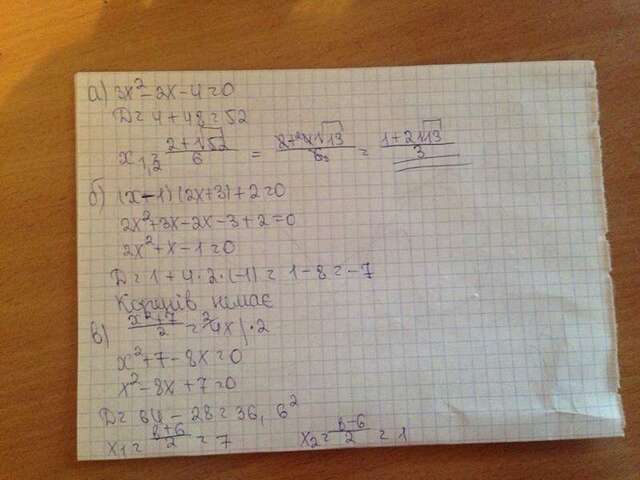 а) 3x²-2x-4=0
D=4+48=52
x₁,₂ = 2+√52/6 = 2+2√13/6₃ = 1+2√13/3
б) (x-1)(2x+3)+2=0
2x²+3x-2x-3+2=0
2x²+x-1=0
D=1+4·2·(-1)=1-8=-7
Коренів немає
в) x²+7/2 = 4x |·2
x²+7-8x=0
x²-8x+7=0
D=64-28=36, 6²
x₁=8+6/2=7 x₂=8-6/2=1